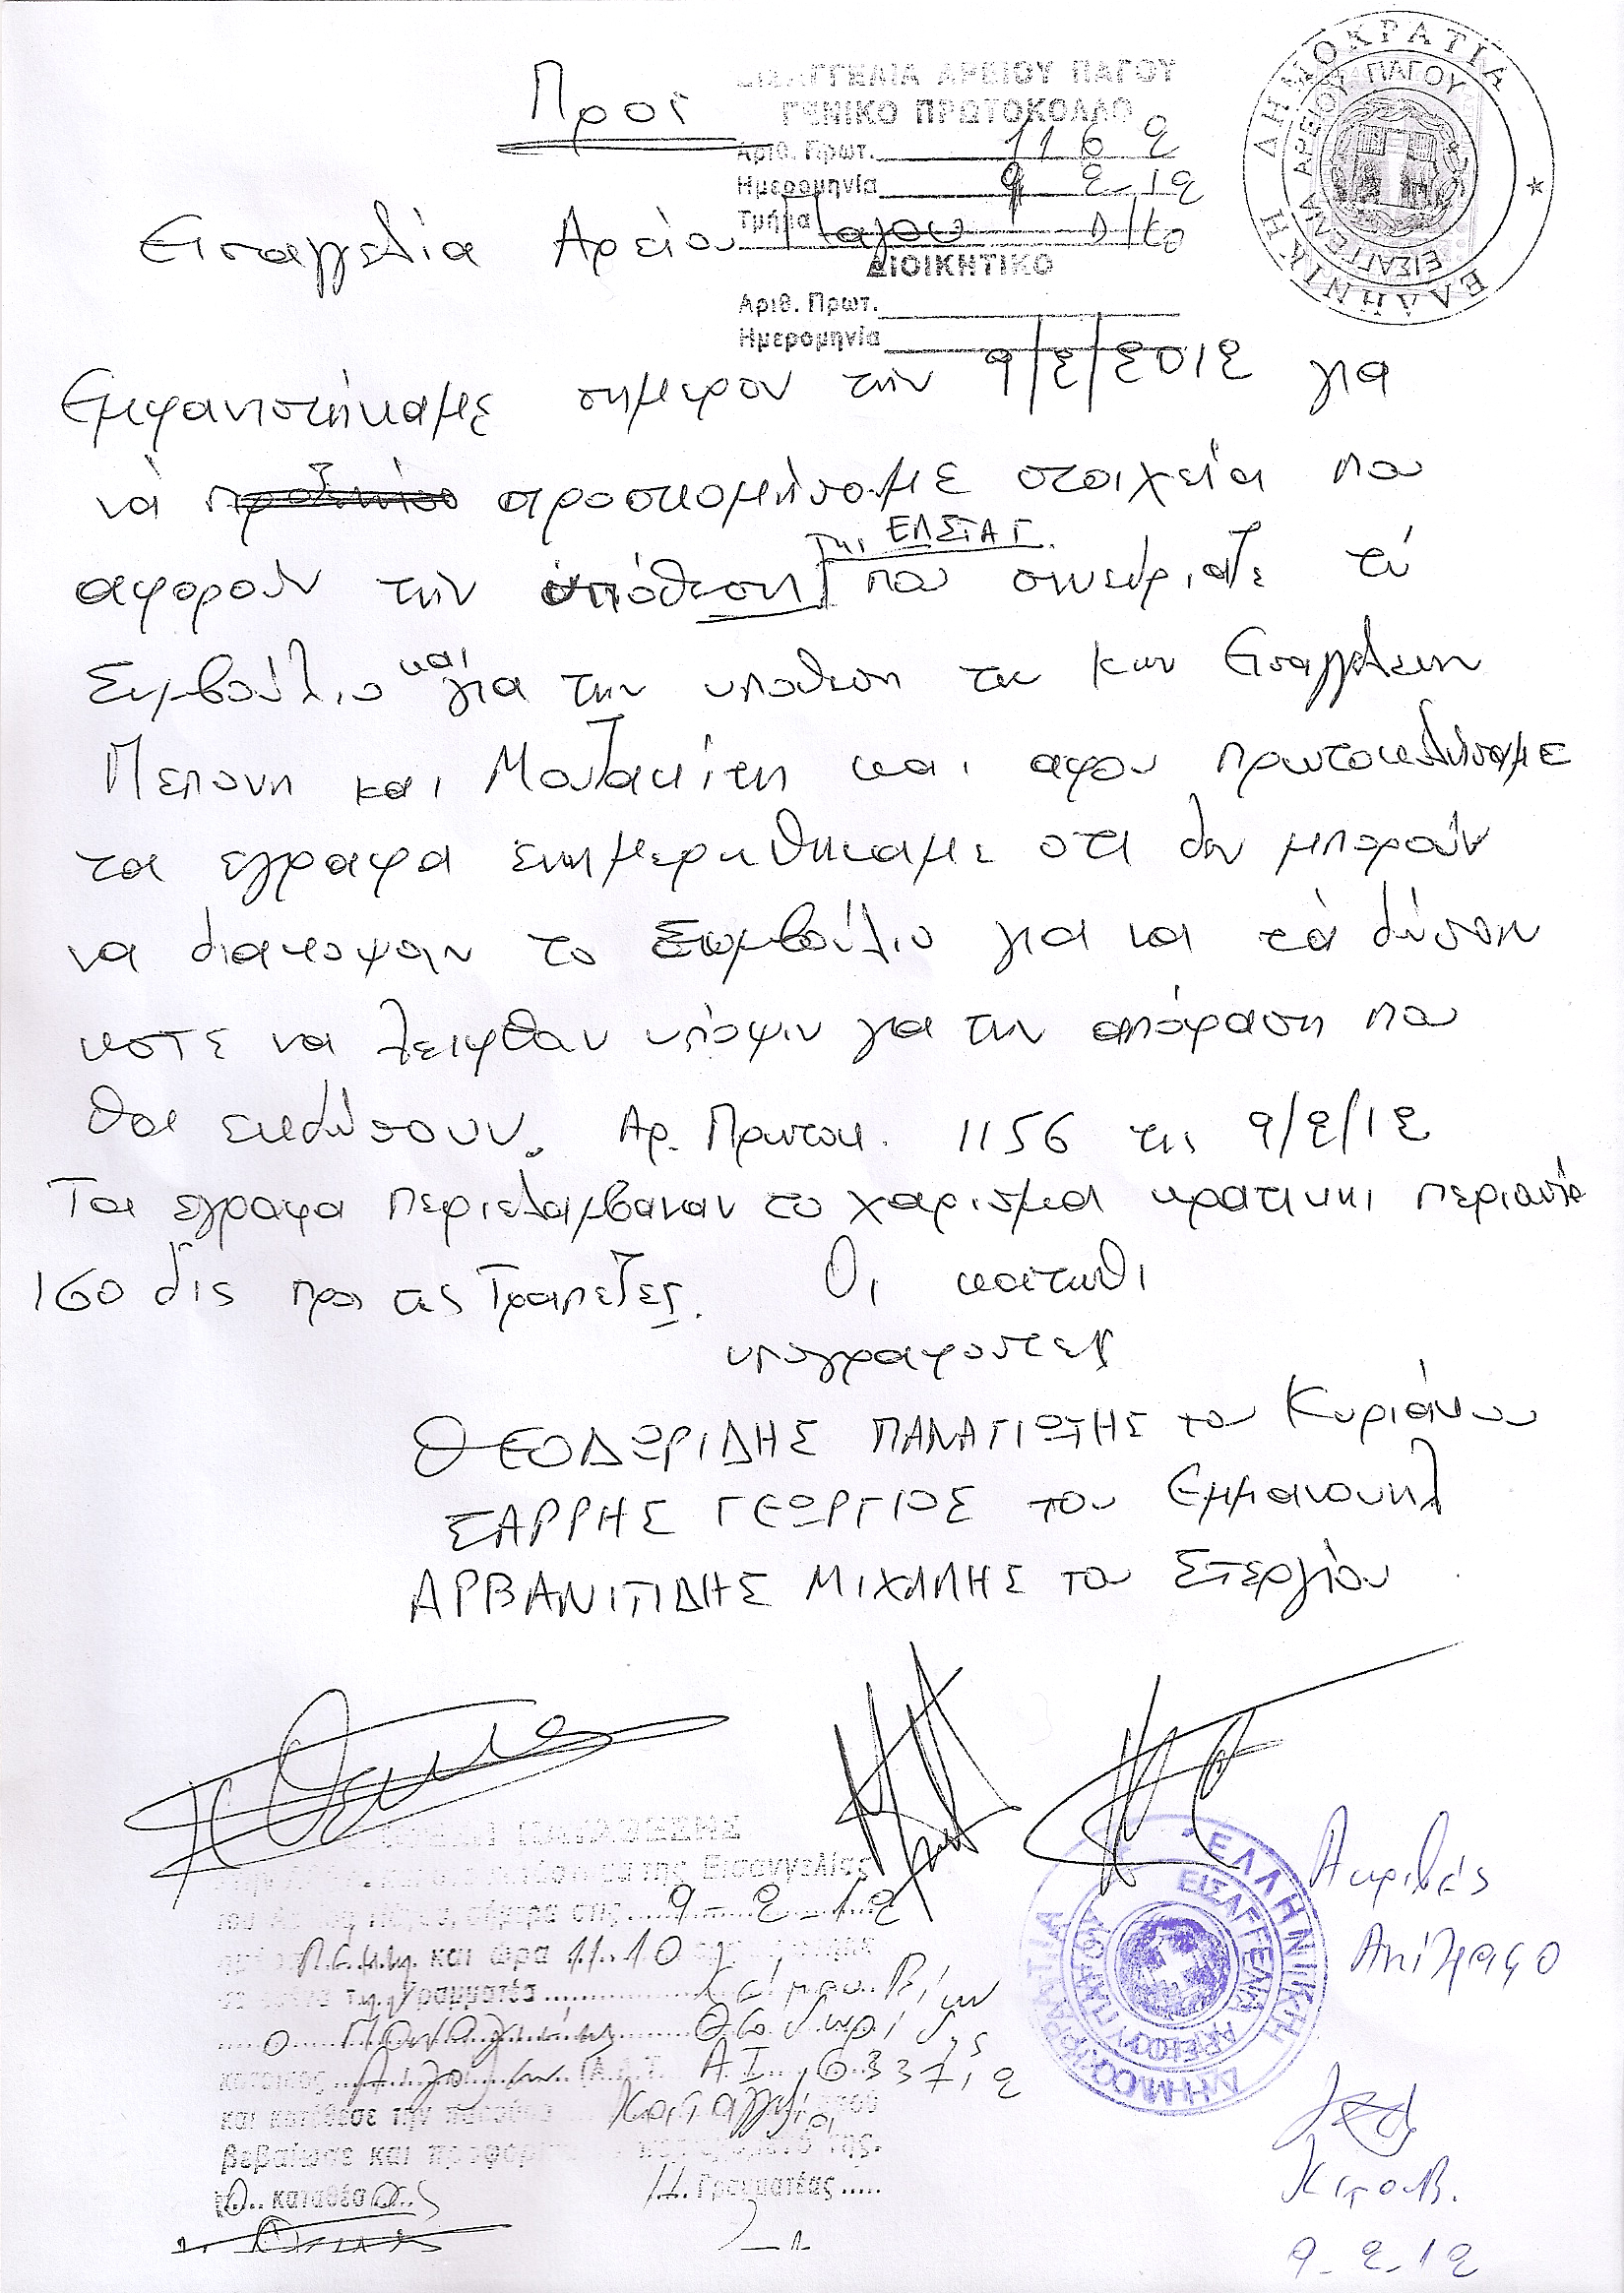 Προς
ΕΙΣΑΓΓΕΛΙΑ ΑΡΕΙΟΥ ΠΑΓΟΥ
ΓΕΝΙΚΟ ΠΡΩΤΟΚΟΛΛΟ
Αριθ. Πρωτ. 1162
Ημερομηνία 9 2-12
Τμήμα
ΔΙΟΙΚΗΤΙΚΟ
Αριθ. Πρωτ.
Ημερομηνία
ΕΛΛΗΝΙΚΗ ΔΗΜΟΚΡΑΤΙΑ
ΕΙΣΑΓΓΕΛΙΑ ΑΡΕΙΟΥ ΠΑΓΟΥ
Εισαγγελία Αρείου Πάγου
Εμφανιστήκαμε σημερον την 9/2/2012 για
νά προσκομήσομε στοιχεία που
της ΕΛΣΤΑΤ.
αφορούν την υπόθεση που συνεδριαζε τό
Συμβούλιο και για την υποθεση των κων Εισαγγελεων
Πεπονη και Μουζακίτη και αφου πρωτοκολλησαμε
τα εγραφα ενημερωθηκαμε οτι δεν μπορούν
να διακοψουν το Συμβούλιο για να τά δώσουν
ωστε να λειφθουν υπόψιν για την απόφαση που
θα εκδώσουν. Αρ. Πρωτοκ. 1156 της 9/2/12
Τα εγραφα περιελαμβαναν το χαρισμα κρατικης περιουσία
160 δις προς τις Τραπεζες. Οι κατωθι
υπογραφοντες
ΘΕΟΔΩΡΙΔΗΣ ΠΑΝΑΓΙΩΤΗΣ του Κυριάκου
ΣΑΡΡΗΣ ΓΕΩΡΓΙΟΣ του Εμμανουηλ
ΑΡΒΑΝΙΤΙΔΗΣ ΜΙΧΑΛΗΣ του Στεργίου
της Εισαγγελίας
του Αρείου Πάγου, σήμερα στις 9-2-12
και ώρα 11.10
Γραμματέα
ο Παναγιώτης Θεοδωρίδης
κάτοικος (Α.Δ.Τ. Α.Ι. 633712
και κατέθεσε την παρούσα
βεβαίωσε και
καταθέσας Γραμματέας
ΕΛΛΗΝΙΚΗ ΔΗΜΟΚΡΑΤΙΑ
ΕΙΣΑΓΓΕΛΙΑ ΑΡΕΙΟΥ ΠΑΓΟΥ
Ακριβές
Αντίγραφο
9-2-12